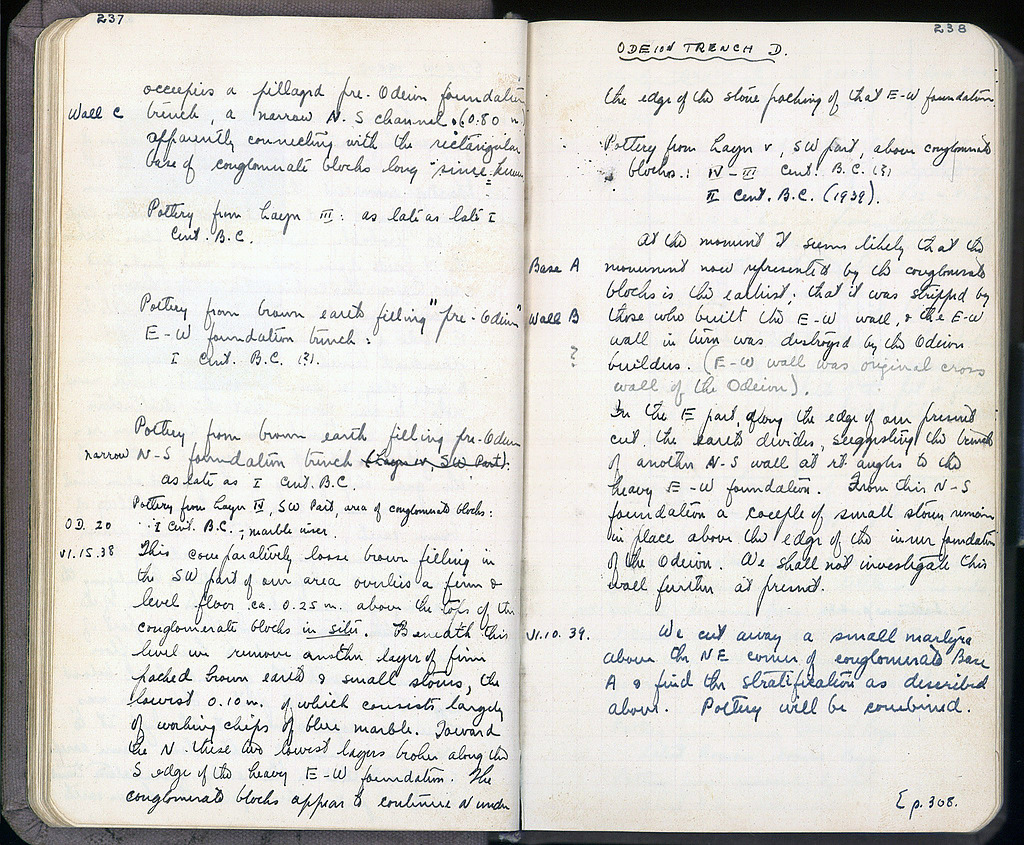 237
occupies a pillaged pre-Odeion foundation
Wall C trench, a narrow N-S channel (0.80 m)
apparently connecting with the rectangular
base of conglomerate blocks long "since-known
Pottery from Layer III: as late as late I
Cent. B.C.
Pottery from brown earth filling "pre-Odeion"
E-W foundation trench:
I Cent. B.C. (?).
Pottery from brown earth filling pre-Odeion
narrow N-S foundation trench (Layer IV, SW Part):
as late as I Cent. B.C.
Pottery from Layer IV, SW Part, area of conglomerate blocks:
OD. 20 I Cent. B.C.; marble
VI.15.38 This comparatively loose brown filling in
the SW part of our area overlies a firm &
level floor ca. 0.25 m. above the tops of the
conglomerate blocks in situ. Beneath this
level we remove another layer of firm
packed brown earth & small stones, the
lowest 0.10 m. of which consists largely
of working chips of blue marble. Toward
the N. these two lowest layers broken along the
S edge of the heavy E-W foundation. The
conglomerate blocks appear to continue N under
238
ODEION TRENCH D.
the edge of the stone packing of that E-W foundation.
Pottery from Layer V, SW part, above conglomerate
blocks: IV-III Cent. B.C. (?)
II Cent. B.C. (1939).
At the moment it seems likely that the
Base A monument now represented by the conglomerate
blocks is the earliest; that it was stripped by
Wall B those who built the E-W wall, & the E-W
wall in turn was destroyed by the Odeion
? builders. (E-W wall was original cross
wall of the Odeion).
In the E part, along the edge of our present
cut, the earth divides, suggesting the trench
of another N-S wall at rt. angles to the
heavy E-W foundation. From this N-S
foundation a couple of small stones remain
in place above the edge of the inner foundation
of the Odeion. We shall not investigate this
wall further at present.
VI.10.39. We cut away a small martyra
above the NE corner of conglomerate Base
A & find the stratification as described
above. Pottery will be combined.
p. 308.